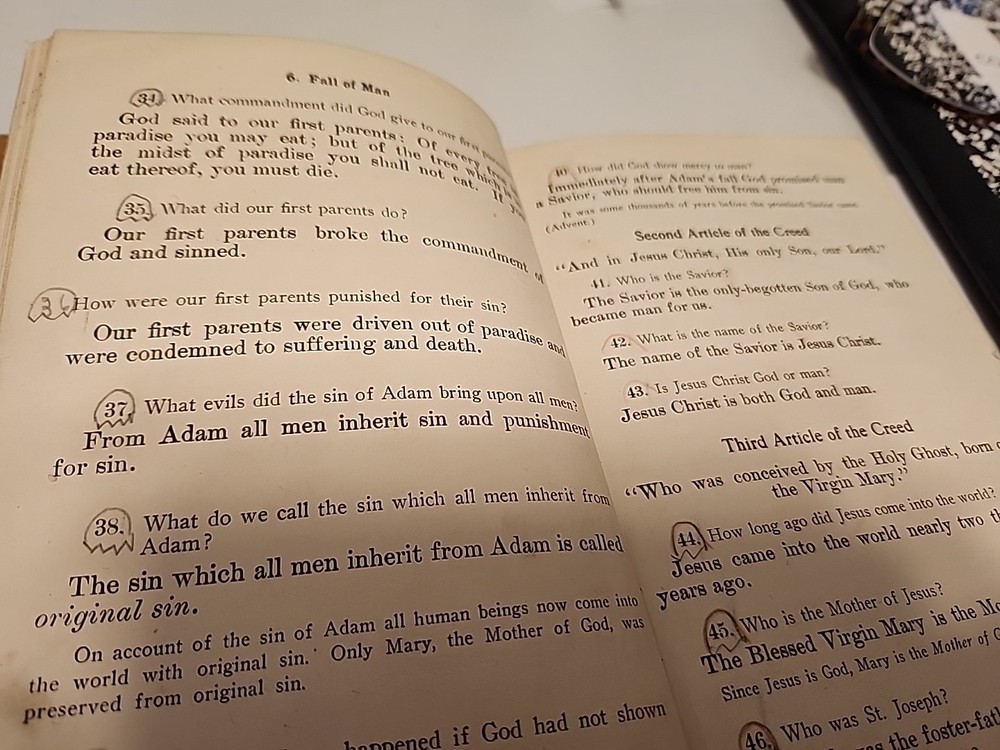 6. Fall of Man
34. What commandment did God give to our first
God said to our first parents: Of every tree
paradise you may eat; but of the tree which
the midst of paradise you shall not eat. If you
eat thereof, you must die.
35. What did our first parents do?
Our first parents broke the commandment of
God and sinned.
36 How were our first parents punished for their sin?
Our first parents were driven out of paradise and
were condemned to suffering and death.
37. What evils did the sin of Adam bring upon all men?
From Adam all men inherit sin and punishment
for sin.
38. What do we call the sin which all men inherit from
Adam?
The sin which all men inherit from Adam is called
original sin.
On account of the sin of Adam all human beings now come into
the world with original sin. Only Mary, the Mother of God, was
preserved from original sin.
happened if God had not shown
40. How did God show mercy to man?
Immediately after Adam's fall God promised man
a Savior, who should free him from sin.
It was some thousands of years before the promised Savior came.
(Advent.)
Second Article of the Creed
"And in Jesus Christ, His only Son, our Lord."
41. Who is the Savior?
The Savior is the only-begotten Son of God, who
became man for us.
42. What is the name of the Savior?
The name of the Savior is Jesus Christ.
43. Is Jesus Christ God or man?
Jesus Christ is both God and man.
Third Article of the Creed
"Who was conceived by the Holy Ghost, born of
the Virgin Mary."
44. How long ago did Jesus come into the world?
Jesus came into the world nearly two
years ago.
45. Who is the Mother of Jesus?
The Blessed Virgin Mary is the
Since Jesus is God, Mary is the Mother of
46. Who was St. Joseph?
the foster-